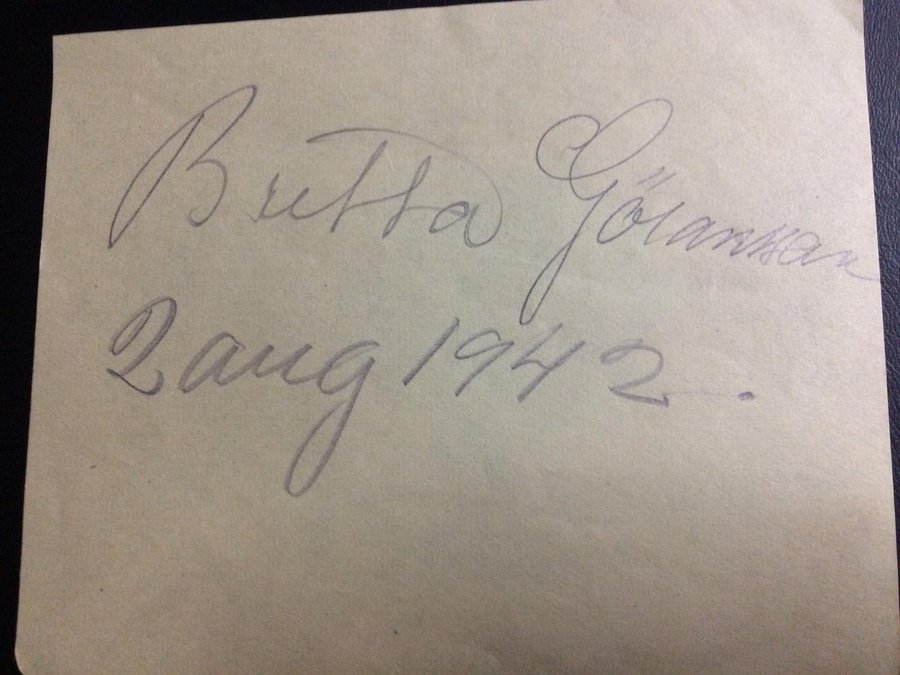 Britta Göransson
2 aug 1942.